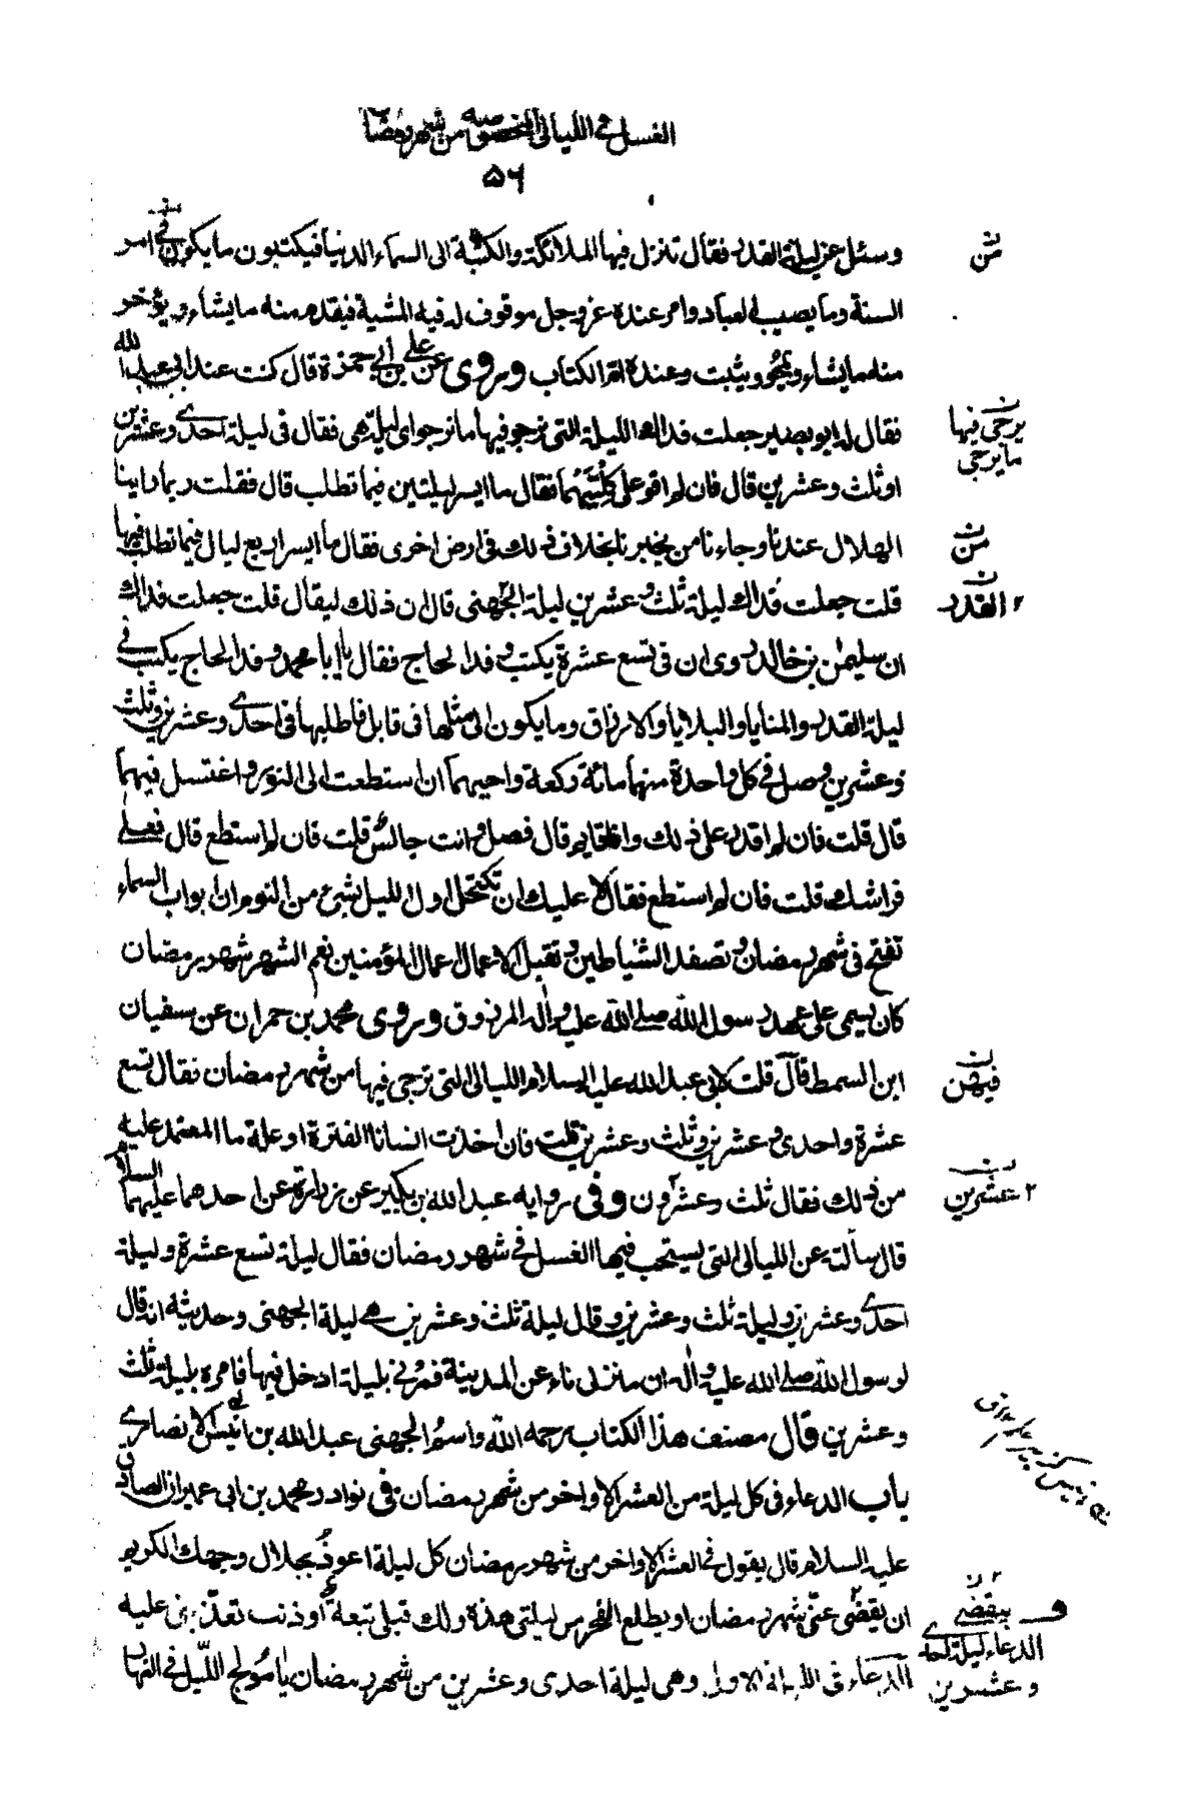 الغسل في الليالى المخصوصة من شهر رمضان
٥٦
وسئل عن ليلة القدر فقال تنزل فيها الملائكة والكتبة الى السماء الدنيا فيكتبون ما يكون فى امر
السنة وما يصيب العباد وامر عنده عزوجل موقوف له فيه المشية فيقدم منه ما يشاء ويؤخر
منه ما يشاء ويمحو ويثبت وعنده ام الكتاب وروى عن على بن ابي حمزة قال كنت عند ابى عبد الله
فقال له ابو بصير جعلت فداك الليلة التى نرجو فيها ما نرجو اى ليلة هى فقال فى ليلة احدى وعشرين
او ثلث وعشرين قال فان لم اقو على كلتيهما فقال ما ايسر ليلتين فيما تطلب قال فقلت ربما راينا
الهلال عندنا وجاءنا من يخبرنا بخلاف ذلك فى ارض اخرى فقال ما ايسر اربع ليال فيما تطلب فيها
قلت جعلت فداك ليلة ثلث وعشرين ليلة الجهنى قال ان ذلك ليقال قلت جعلت فداك
ان سليمن بن خالد روى ان فى تسع عشرة يكتب وفد الحاج فقال يا ابا محمد وفد الحاج يكتب فى
ليلة القدر والمنايا والبلايا والارزاق وما يكون الى مثلها فى قابل فاطلبها فى احدى وعشرين وثلث
وعشرين وصل فى كل واحدة منهما مائة ركعة واحيهما ان استطعت الى النور واغتسل فيهما
قال قلت فان لم اقدر على ذلك وانا قايم قال فصل وانت جالس قلت فان لم استطع قال فعلى
فراشك قلت فان لم استطع فقال لا عليك ان تكتحل اول الليل بشئ من النوم ان ابواب السماء
تفتح فى شهر رمضان وتصفد الشياطين وتقبل الاعمال اعمال المؤمنين نعم الشهر شهر رمضان
كان يسمى على عهد رسول الله صلى الله عليه واله المرزوق وروى محمد بن حمران عن سفيان
ابن السمط قال قلت لابى عبد الله عليه السلام الليالى التى ترجى فيها من شهر رمضان فقال تسع
عشرة واحدى وعشرين وثلث وعشرين قلت فان اخذت انسانا الفترة او علة ما المعتمد عليه
من ذلك فقال ثلث وعشرون وفى رواية عبد الله بن بكير عن زرارة عن احدهما عليهما السلام
قال سألته عن الليالى التى يستحب فيها الغسل فى شهر رمضان فقال ليلة تسع عشرة وليلة
احدى وعشرين وليلة ثلث وعشرين وقال ليلة ثلث وعشرين هى ليلة الجهنى وحديثه انه قال
لرسول الله صلى الله عليه واله ان منزلى ناء عن المدينة فمرنى بليلة ادخل فيها فامره بليلة ثلث
وعشرين قال مصنف هذا الكتاب رحمه الله واسم الجهنى عبد الله بن انيس الانصارى
باب الدعاء فى كل ليلة من العشر الاواخر من شهر رمضان فى نوادر محمد بن ابى عمير ان الصادق
عليه السلام قال يقول فى العشر الاواخر من شهر رمضان كل ليلة اعوذ بجلال وجهك الكريم
ان يقضى عنى شهر رمضان او يطلع الفجر من ليلتى هذه ولك قبلى تبعة او ذنب تعذبنى عليه
الدعاء فى الليلة الاولى وهى ليلة احدى وعشرين من شهر رمضان يا مولج الليل فى النهار
من
يرجى فيها
ما يرجى
من
القدر
فيهن
عشرين
ينقضى
الدعاء ليلة احد
وعشرين